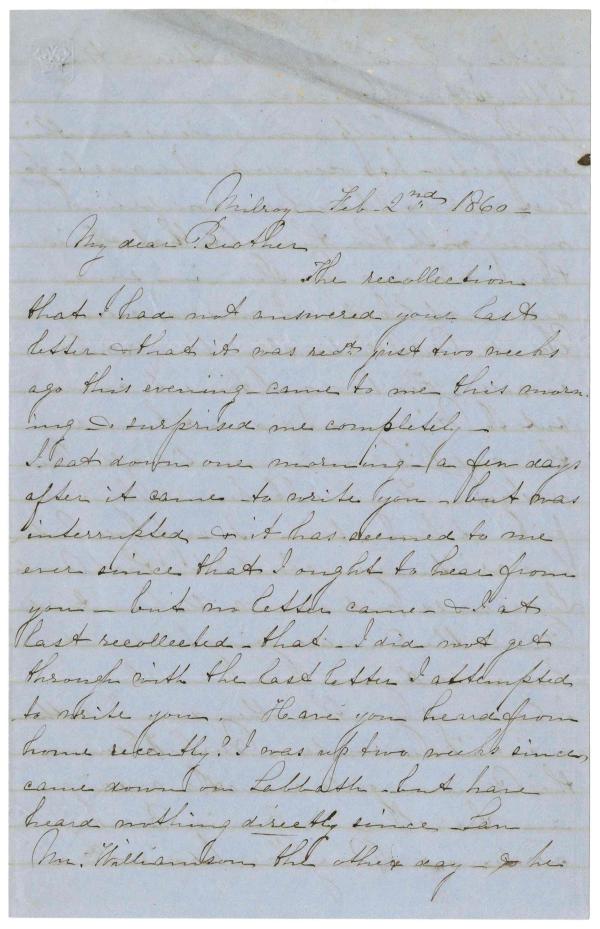 Milroy - Feb - 2nd 1860 -
My dear Brother
The recollection
that I had not answered your last
letter - & that it was recd. just two weeks
ago this evening - came to me this morn-
ing - & surprised me completely -
I sat down one morning - a few days
after it came - to write you - but was
interrupted - & it has seemed to me
ever since that I ought to hear from
you - but no letter came - & I at
last recollected - that - I did not get
through with the last letter I attempted
to write you. Have you heard from
home recently? I was up two weeks since,
came down on Sabbath - but have
heard nothing directly since - Saw
Mr. Williamson the other day - & he